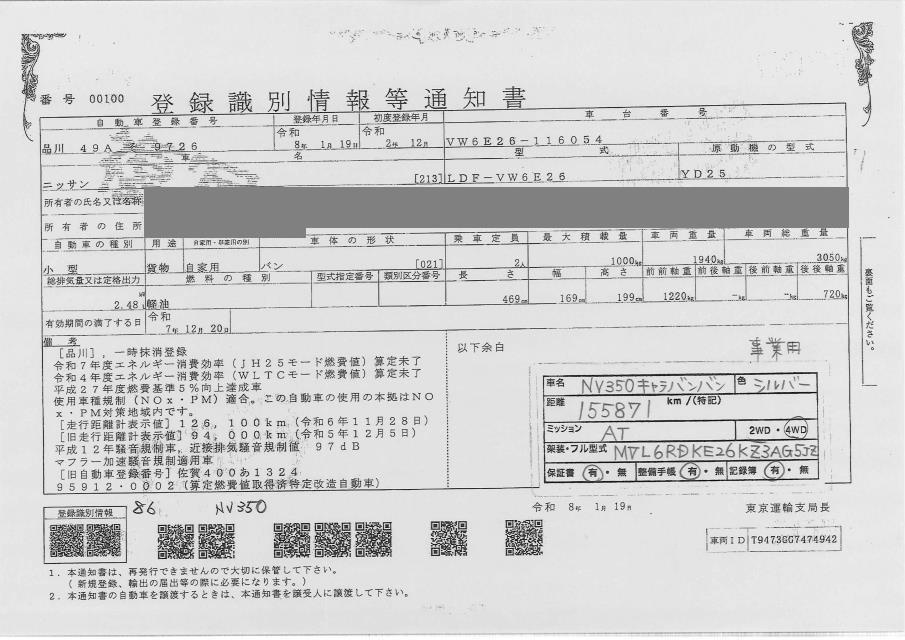 番号 00100 登録識別情報等通知書
自動車登録番号 登録年月日 初度登録年月 車台番号
品川 49A 9726 令和 8年 1月 19日 令和 2年 12月 VW6E26-116054
車名 型式 原動機の型式
ニッサン [213] LDF-VW6E26 YD25
所有者の氏名又は名称
所有者の住所
自動車の種別 用途 自家用・事業用の別 車体の形状 乗車定員 最大積載量 車両重量 車両総重量
小型 貨物 自家用 バン [021] 2人 1000kg 1940kg 3050kg
総排気量又は定格出力 燃料の種別 型式指定番号 類別区分番号 長さ 幅 高さ 前前軸重 前後軸重 後前軸重 後後軸重
2.48 軽油 469cm 169cm 199cm 1220kg -kg -kg 720kg
有効期間の満了する日 令和 7年 12月 20日
備考
[品川],一時抹消登録
令和7年度エネルギー消費効率(JH25モード燃費値)算定未了
令和4年度エネルギー消費効率(WLTCモード燃費値)算定未了
平成27年度燃費基準5%向上達成車
使用車種規制(NOx・PM)適合。この自動車の使用の本拠はNO
x・PM対策地域内です。
[走行距離計表示値]126,100km(令和6年11月28日)
[旧走行距離計表示値]94,000km(令和5年12月5日)
平成12年騒音規制車,近接排気騒音規制値 97dB
マフラー加速騒音規制適用車
[旧自動車登録番号]佐賀400あ1324
95912・0002(算定燃費値取得済特定改造自動車)
以下余白
事業用
車名 NV350キャラバンバン 色 シルバー
距離 155871 km/(特記)
ミッション AT 2WD・4WD
架装・フル型式 MVL6RDKE26KZ3AG5JZ
保証書 有・無 整備手帳 有・無 記録簿 有・無
裏面もご覧ください。
登録識別情報 86 NV350
令和 8年 1月 19日 東京運輸支局長
車両ID T9473GG7474942
1.本通知書は、再発行できませんので大切に保管して下さい。
(新規登録、輸出の届出等の際に必要になります。)
2.本通知書の自動車を譲渡するときは、本通知書を譲受人に譲渡して下さい。